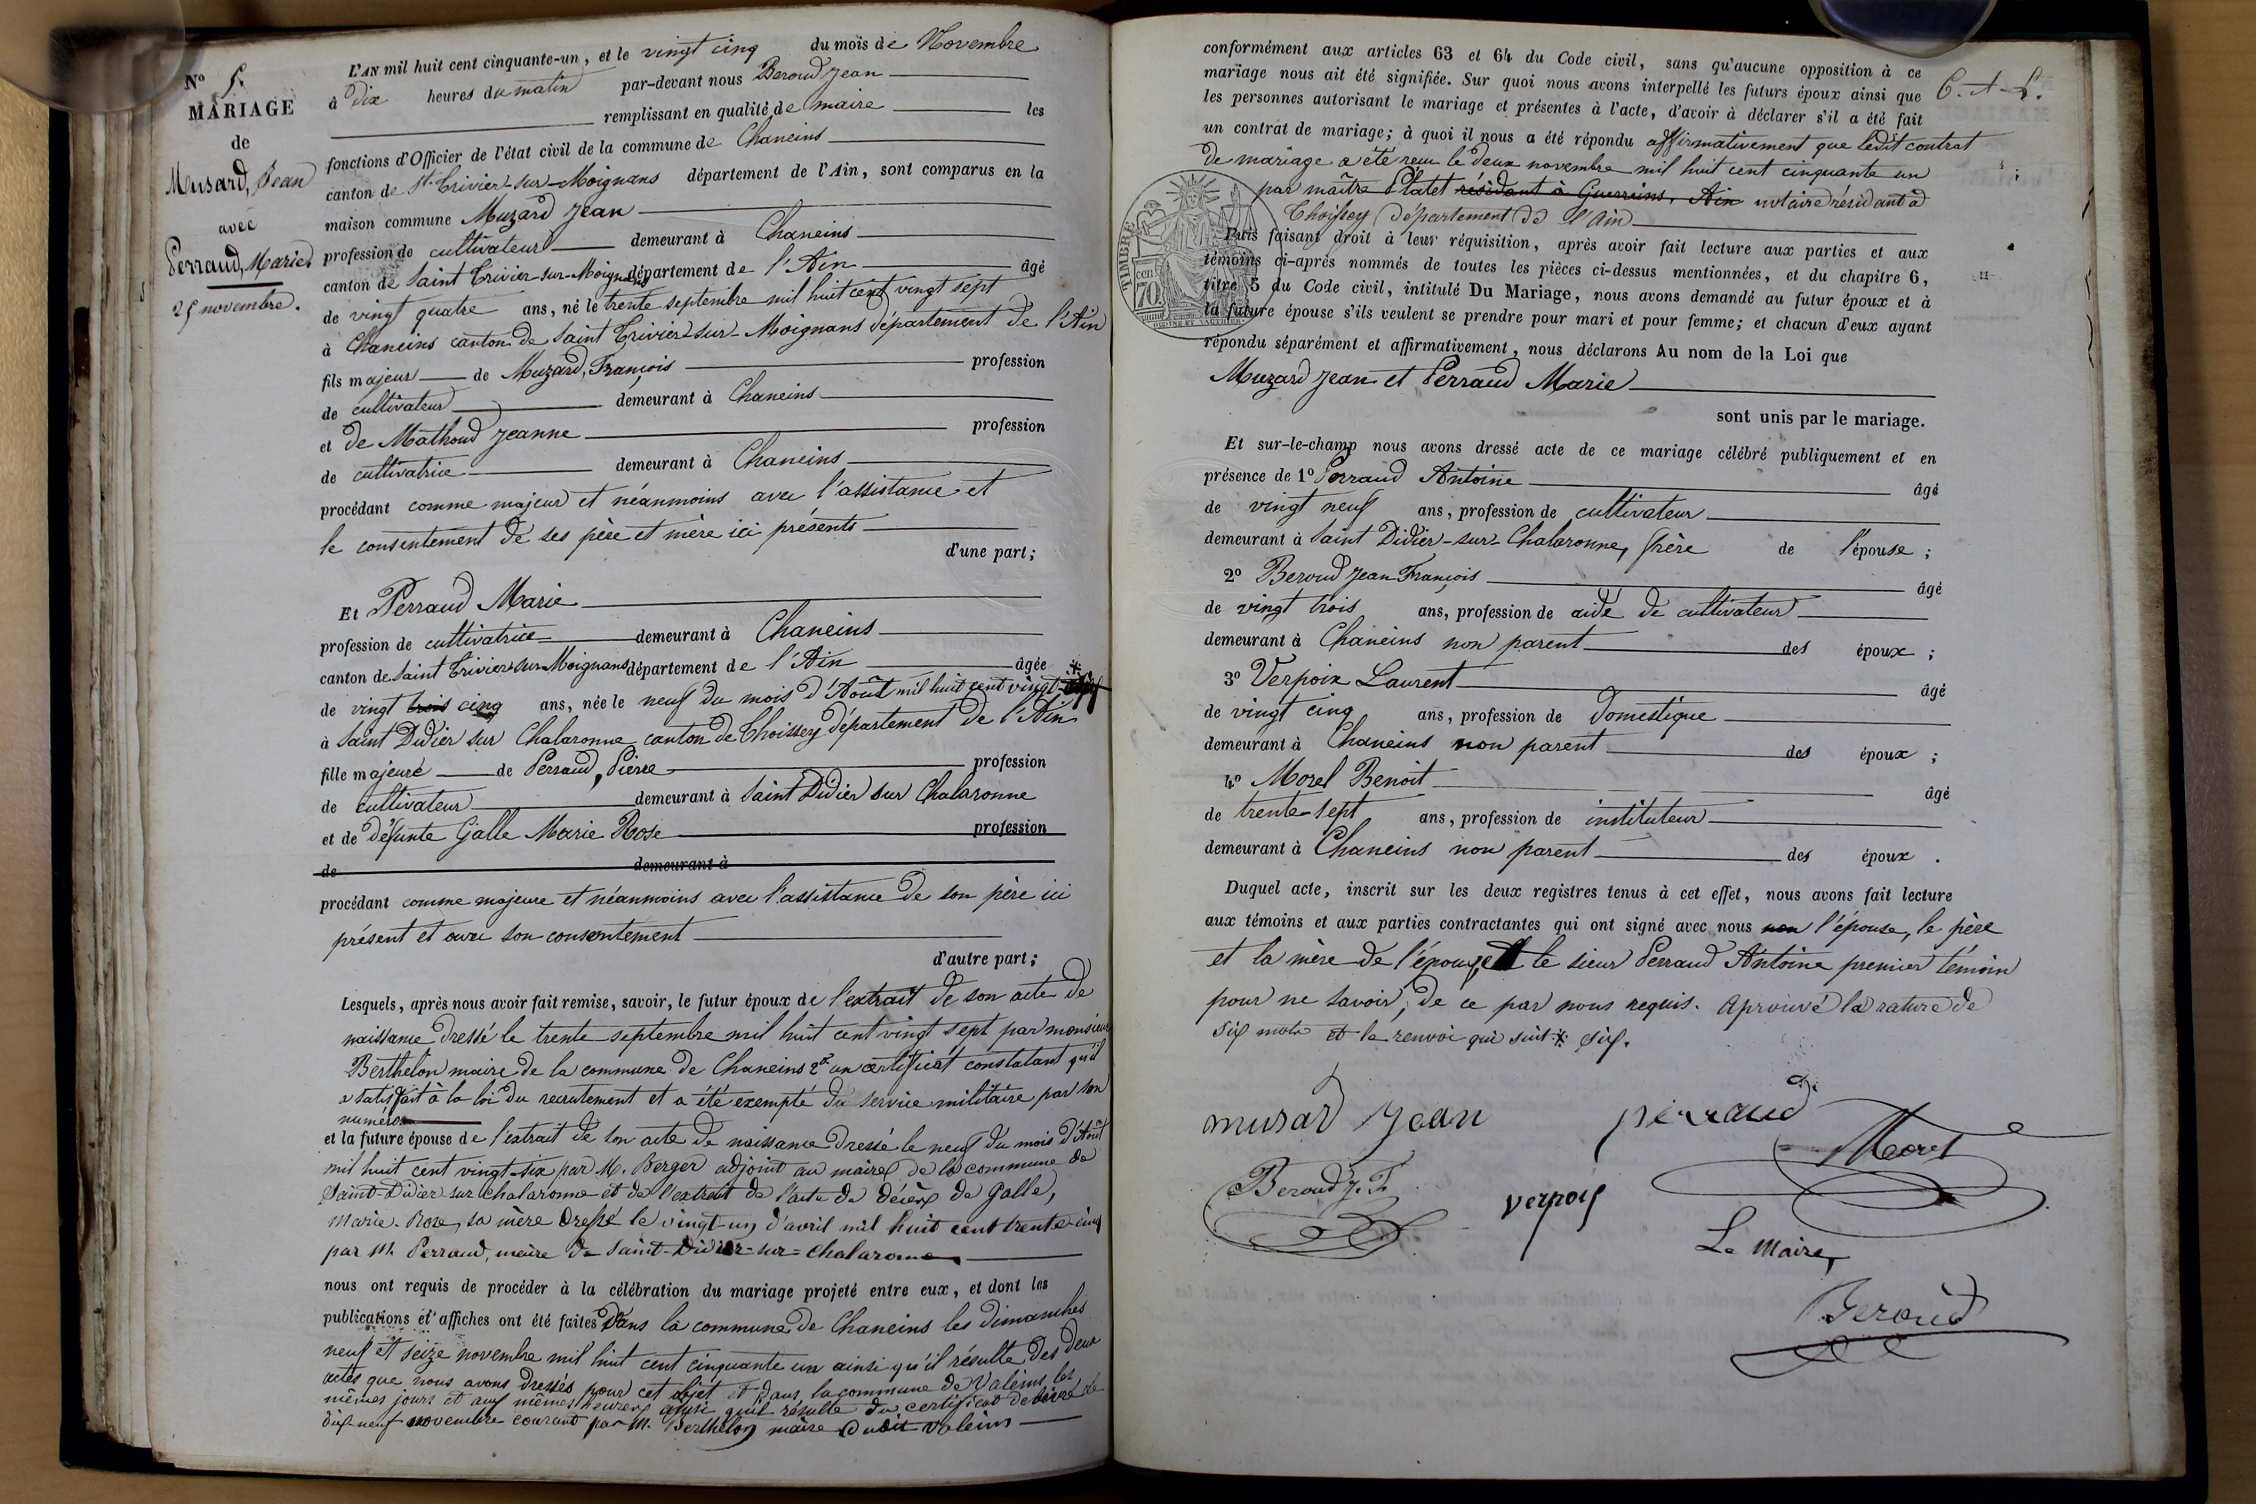 N° 5.
MARIAGE
de
Musard, Jean
avec
Perraud, Marie.
25 novembre.
L'AN mil huit cent cinquante-un, et le vingt cinq du mois de Novembre
à dix heures du matin par-devant nous Beroud Jean
remplissant en qualité de maire les
fonctions d'Officier de l'état civil de la commune de Chaneins
canton de St. Trivier-sur-Moignans département de l'Ain, sont comparus en la
maison commune Muzard Jean
profession de cultivateur demeurant à Chaneins
canton de Saint Trivier-sur-Moignans département de l'Ain âgé
de vingt quatre ans, né le trente septembre mil huit cent vingt sept
à Chaneins canton de Saint Trivier-sur-Moignans département de l'Ain
fils majeur de Muzard, François profession
de cultivateur demeurant à Chaneins
et de Mathoud Jeanne profession
de cultivatrice demeurant à Chaneins
procédant comme majeur et néanmoins avec l'assistance et
le consentement de ses père et mère ici présents
d'une part;
Et Perraud Marie
profession de cultivatrice demeurant à Chaneins
canton de Saint Trivier-sur-Moignans département de l'Ain âgée
de vingt trois cinq ans, née le neuf du mois d'Août mil huit cent vingt *
à Saint Didier sur Chalaronne canton de Thoissey département de l'Ain
fille majeure de Perraud, Pierre profession
de cultivateur demeurant à Saint Didier sur Chalaronne
et de défunte Galle Marie Rose profession
de demeurant à
procédant comme majeure et néanmoins avec l'assistance de son père ici
présent et avec son consentement
d'autre part;
Lesquels, après nous avoir fait remise, savoir, le futur époux de l'extrait de son acte de
naissance dressé le trente septembre mil huit cent vingt sept par monsieur
Berthelon maire de la commune de Chaneins 2° un certificat constatant qu'il
a satisfait à la loi du recrutement et a été exempté du service militaire par son
numéro
et la future épouse de l'extrait de son acte de naissance dressé le neuf du mois d'Août
mil huit cent vingt-six par M. Berger adjoint au maire de la commune de
Saint-Didier sur Chalaronne et de l'extrait de l'acte de décès de Galle,
Marie-Rose, sa mère dressé le vingt-un d'avril mil huit cent trente-cinq
par M. Perraud, maire de Saint-Didier-sur-Chalaronne,
nous ont requis de procéder à la célébration du mariage projeté entre eux, et dont les
publications et affiches ont été faites dans la commune de Chaneins les dimanches
neuf et seize novembre mil huit cent cinquante un ainsi qu'il résulte des deux
actes que nous avons dressés pour cet objet et dans la commune de Valeins les
mêmes jours et aux mêmes heures ainsi qu'il résulte du certificat délivré le
dix neuf novembre courant par M. Berthelon maire dudit Valeins
conformément aux articles 63 et 64 du Code civil, sans qu'aucune opposition à ce
mariage nous ait été signifiée. Sur quoi nous avons interpellé les futurs époux ainsi que
C.-A-L.
les personnes autorisant le mariage et présentes à l'acte, d'avoir à déclarer s'il a été fait
un contrat de mariage; à quoi il nous a été répondu affirmativement que ledit contrat
de mariage a été reçu le deux novembre mil huit cent cinquante un
par maître Platet résidant à Guerreins, Ain notaire résidant à
Thoissey département de l'Ain
TIMBRE
cen
70
Puis faisant droit à leur réquisition, après avoir fait lecture aux parties et aux
témoins ci-après nommés de toutes les pièces ci-dessus mentionnées, et du chapitre 6,
titre 5 du Code civil, intitulé Du Mariage, nous avons demandé au futur époux et à
la future épouse s'ils veulent se prendre pour mari et pour femme; et chacun d'eux ayant
répondu séparément et affirmativement, nous déclarons Au nom de la Loi que
Muzard Jean et Perraud Marie
sont unis par le mariage.
Et sur-le-champ nous avons dressé acte de ce mariage célébré publiquement et en
présence de 1° Perraud Antoine âgé
de vingt neuf ans, profession de cultivateur
demeurant à Saint Didier-sur-Chalaronne, frère de l'épouse;
2° Beroud Jean François âgé
de vingt trois ans, profession de aide de cultivateur
demeurant à Chaneins non parent des époux;
3° Verpoix Laurent âgé
de vingt cinq ans, profession de domestique
demeurant à Chaneins non parent des époux;
4° Morel Benoît âgé
de trente-sept ans, profession de instituteur
demeurant à Chaneins non parent des époux.
Duquel acte, inscrit sur les deux registres tenus à cet effet, nous avons fait lecture
aux témoins et aux parties contractantes qui ont signé avec nous non l'épouse, le père
et la mère de l'époux, et le sieur Perraud Antoine premier témoin
pour ne savoir, de ce par nous requis. Aprouvé la rature de
six mots et le renvoi qui suit * six.
musard Jean
perraud
Morel
Beroud J. F.
verpoix
Le Maire,
Beroud